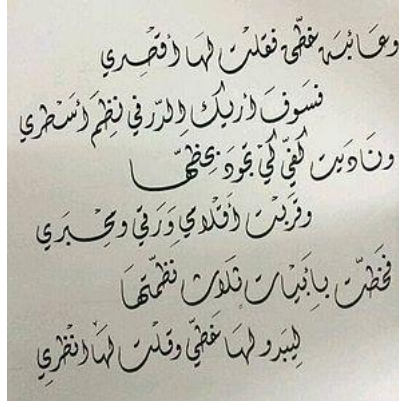 وعائبة خطّي فقلت لها أقصري
فسوف أريك الدّر في نظم أسطري
وناديت كفّي كي تجود بخطّها
وقربت أقلامي ورقي ومحبري
فخطّت بأبيات ثلاث نظمتها
ليبدو لها خطّي وقلت لها انظري